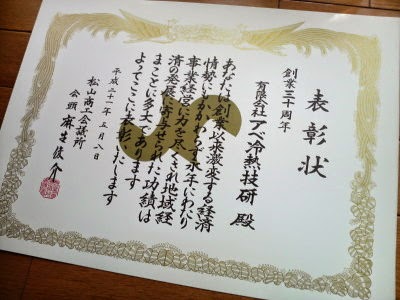 表彰状
創業三十周年
有限会社アベ冷熱技研 殿
あなたは創業以来激変する経済
情勢にもかかわらず永年にわたり
事業経営に力を尽くされ地域経
済の発展に寄与せられた功績は
まことに多大であります
よってここに表彰いたします
平成二十一年五月八日
松山商工会議所
会頭 麻生俊介